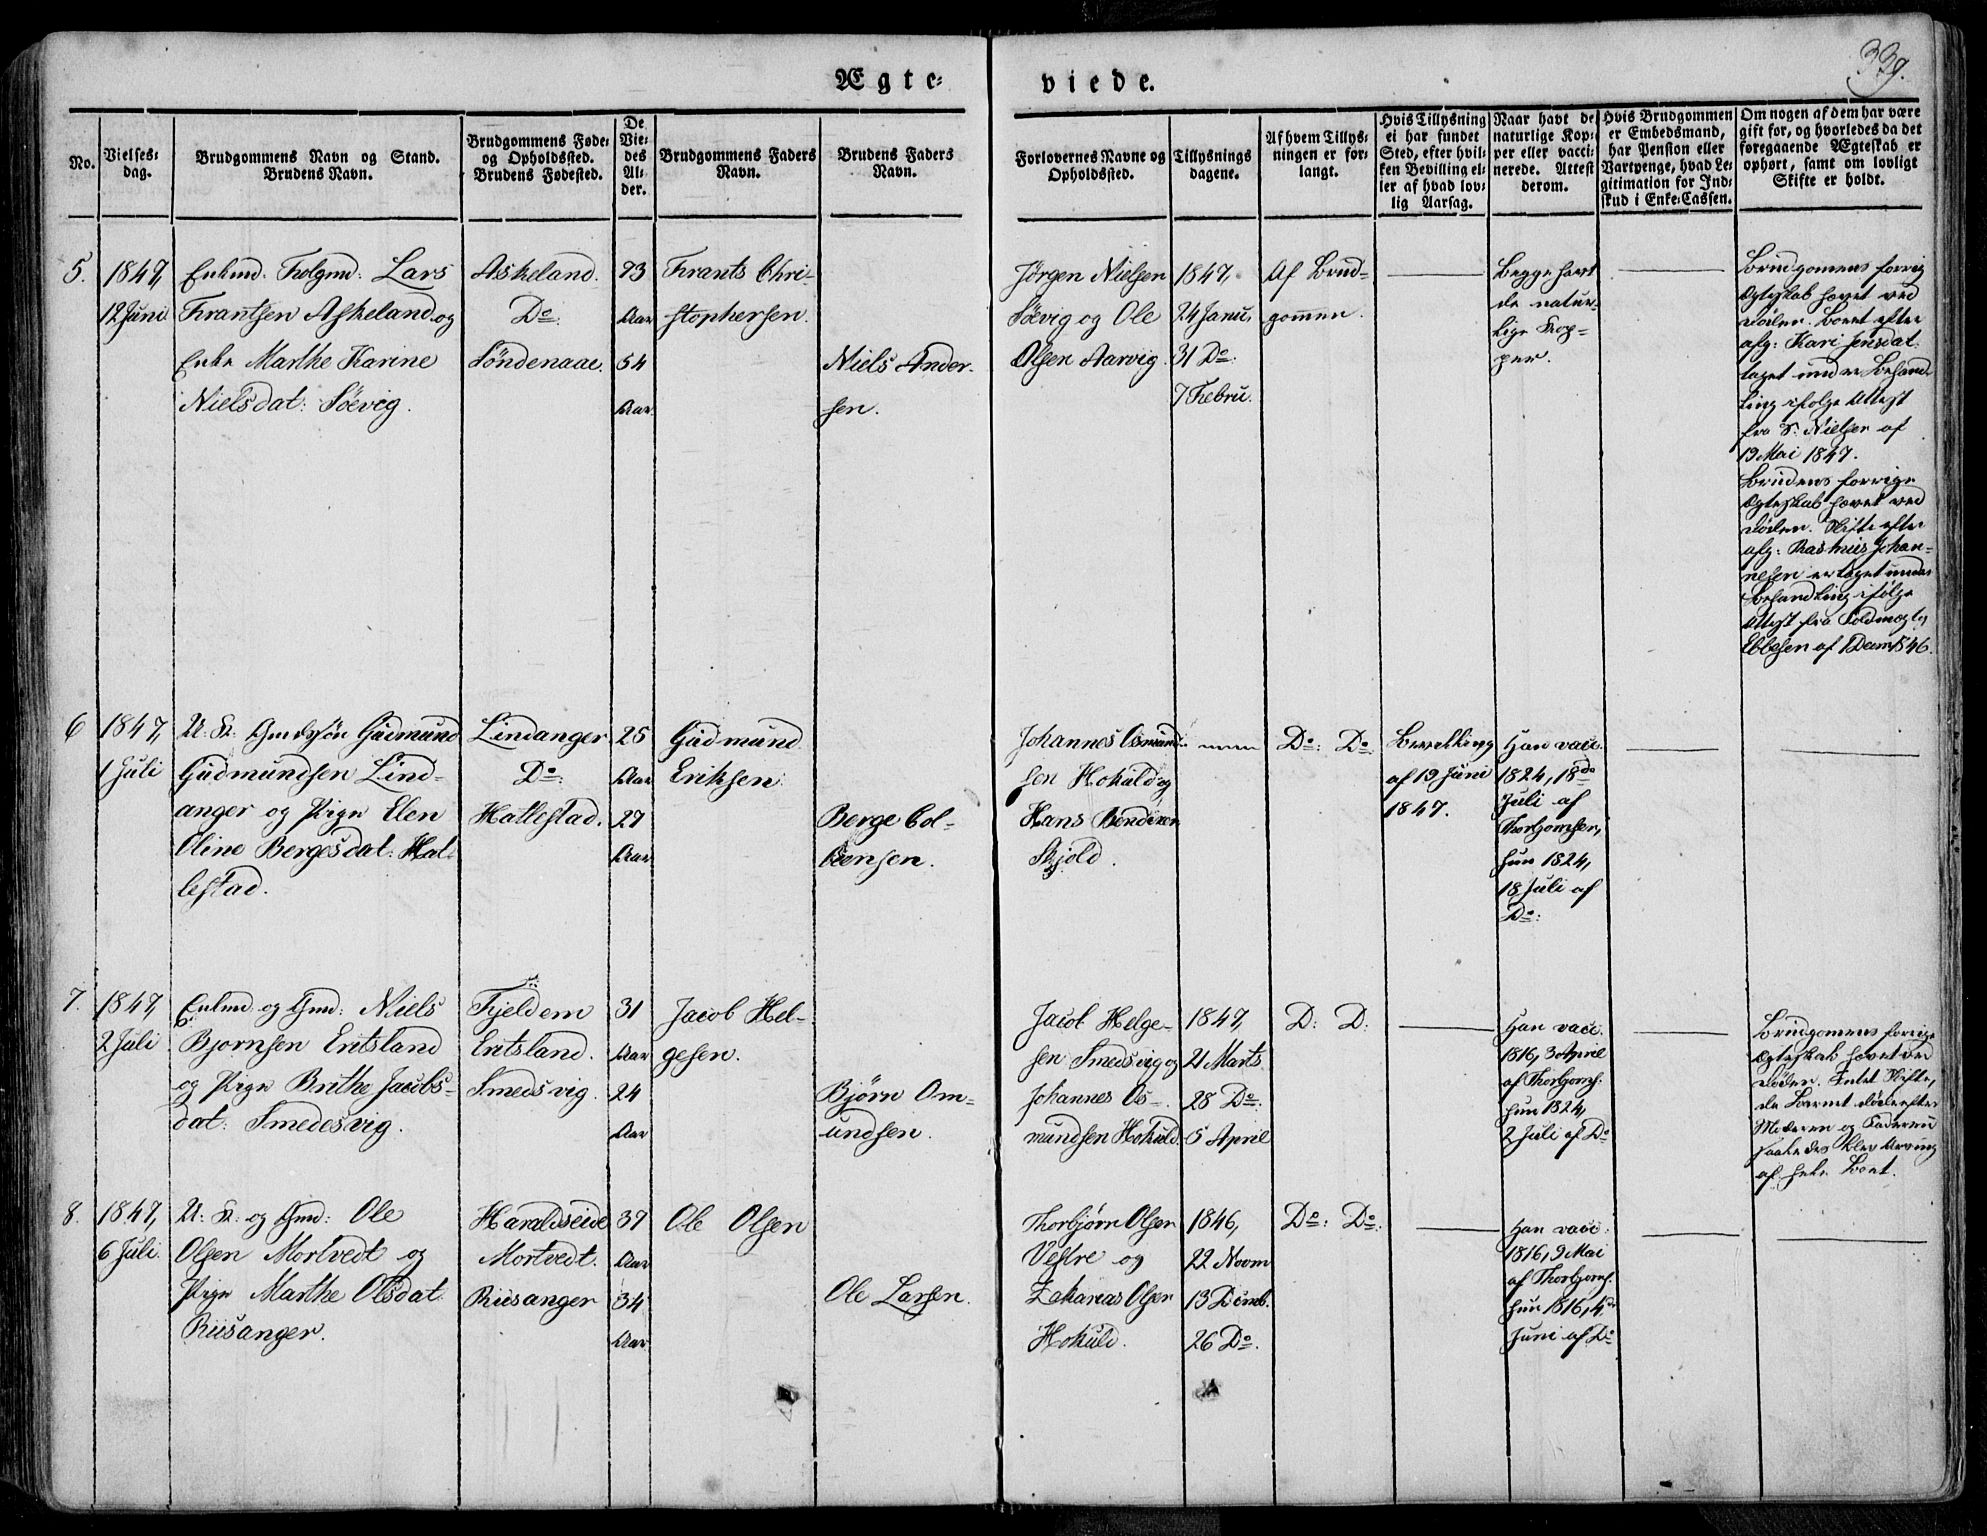 339.
Ægte=
viede.
No.
Vielses=
dag.
Brudgommens Navn og Stand.
Brudens Navn.
Brudgommens Føde=
og Opholdssted.
Brudens Fødested.
De
Vie=
des
Al=
der.
Brudgommens Faders
Navn.
Brudens Faders
Navn.
Forlovernes Navne og
Opholdssted.
Tillysnings
dagene.
Af hvem Tillys=
ningen er for=
langt.
Hvis Tillysning
ei har fundet
Sted, efter hvil=
ken Bevilling el=
ler af hvad lov=
lig Aarsag.
Naar havt de
naturlige Kop=
per eller vacci=
nerede. Attest
derom.
Hvis Brudgommen
er Embedsmand,
har Pension eller
Vartpenge, hvad Le=
gitimation for Ind=
skud i Enke=Cassen.
Om nogen af dem har være
gift for, og hvorledes da det
foregaaende Ægteskab er
ophørt, samt om lovligt
Skifte er holdt.
5.
1847,
12 Juni
Enkmd: Folgmd: Lars
Frantsen Askeland og
Enke Marthe Karine
Nielsdat: Søevig.
Askeland.
Do:
Søndenaae.
73
Aar
54
Aar
Frants Chri-
stophersen.
Niels Ander-
sen.
Jørgen Nielsen
Søevig og Ole
Olsen Aarvig.
1847,
24 Janu.
31 Do:
7 Febru.
Af Brud-
gommen.
Begge havt
de natur-
lige Kop-
per.
Brudgomens forrig
Ægteskab hævet ved
Døden. Boet efter
afg: Kari Jensdat.
taget under Behand-
ling ifølge Attest
fra S. Nielsen af
19 Mai 1847.
Brudens forrige
Ægteskab hævet ved
Døden. Skifte efter
afg: Rasmus Johan-
nesen er taget under
Behandling ifølge
Attest fra Foldmægtig
Ebbesen af 1 Decm 1846.
6
1847,
1 Juli
U. K: Gmdssøn Gudmund
Gudmundsen Lind-
anger og Pige Elen
Oline Bergesdat: Hal-
lestad.
Lindanger
Do:
Hallestad.
25
Aar
27
Aar
Gudmund
Eriksen:
Berge Col-
bensen.
Johannes Osmund-
sen Hokuld og
Hans Bendixen
Skjold.
Do: Do:
Bevilling
af 19 Juni
1847.
Han vacc:
1824, 18de
Juli af
Thorbjornsen,
hun 1824,
18 Juli af
Do:
7.
1847,
2 Juli
Enkmd og Gmd: Niels
Bjornsen Eritsland
og Pige Brithe Jacobs-
dat: Smedesvig.
Fjeldem
Eritsland.
Smedsvig
31
Aar
24
Aar
Jacob Hel-
gesen.
Bjørn Om-
undsen.
Jacob Helge-
sen Smedsvig og
Johannes Os-
mundsen Hokuld
1847,
21 Marts
28 Do:
5 April
D: D:
Han vacc:
1816, 3 April
af Thorbjornsf.
hun 1824,
2 Juli af Do
Brudgomens forrige
Ægteskab hævet ved
Døden. Intet Skifte,
da Barnet døde efter
Moderen og Faderen
saaledes blev Arving
af hele Boet.
8.
1847,
6 Juli.
U: K: og Gmd: Ole
Olsen Mortvedt og
Pige Marthe Olsdat.
Riisanger.
Haraldseide
Mortvedt.
Riisanger
37
Aar
34
Aar
Ole Olsen
Ole Larsen.
Thorbjørn Olsen
Vestre og
Zakarias Olsen
Hokuld.
1846,
22 Novm
13 Decmb.
26 Do:
Do: Do:
Han vacc:
1816, 9 Mai
af Thorbjornsf.
hun 1816, 4de
Juni af Do